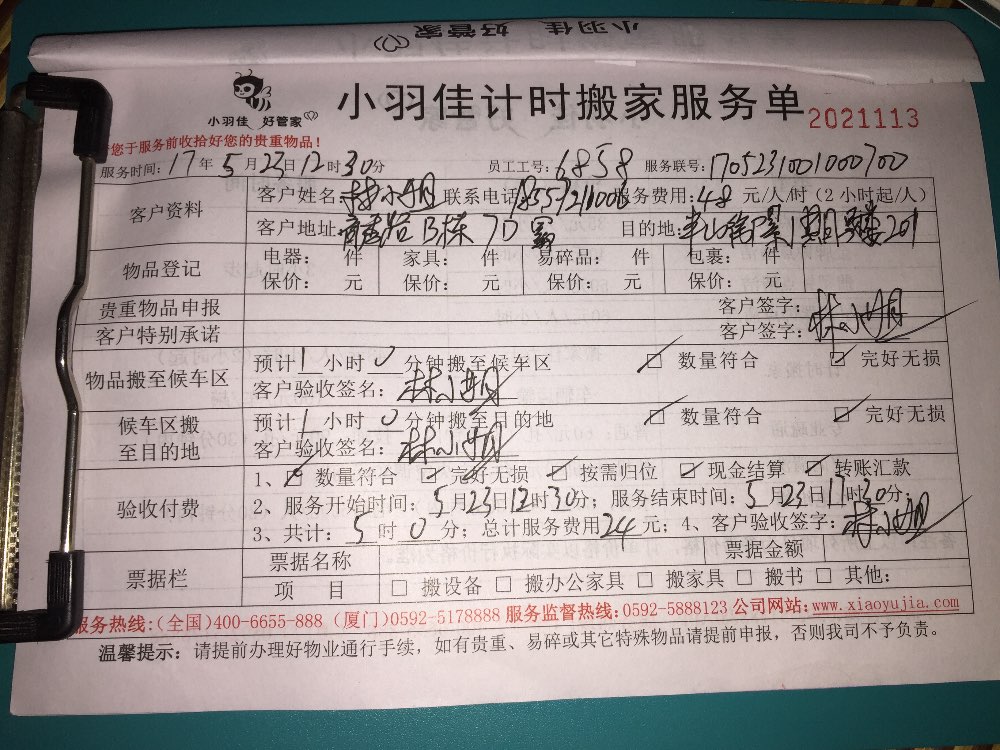 小羽佳 好管家
小羽佳 好管家
小羽佳计时搬家服务单 2021113
您于服务前收拾好您的贵重物品！
服务时间：17年5月23日12时30分 员工工号：6858 服务联号：1705231001000700
客户资料
客户姓名： 联系电话 服务费用：48元/人/时（2小时起/人）
客户地址： B栋7D 目的地：
物品登记
电器： 件 家具： 件 易碎品： 件 包裹： 件
保价： 元 保价： 元 保价： 元 保价： 元
贵重物品申报 客户签字：
客户特别承诺 客户签字：
物品搬至候车区
预计1小时0分钟搬至候车区 数量符合 完好无损
客户验收签名：
候车区搬至目的地
预计1小时0分钟搬至目的地 数量符合 完好无损
客户验收签名：
验收付费
1、 数量符合 完好无损 按需归位 现金结算 转账汇款
2、服务开始时间：5月23日12时30分；服务结束时间：5月23日17时30分；
3、共计：5时0分；总计服务费用24元；4、客户验收签字：
票据栏
票据名称 票据金额
项 目 □搬设备 □搬办公家具 □搬家具 □搬书 □其他：
服务热线：（全国）400-6655-888（厦门）0592-5178888 服务监督热线：0592-5888123 公司网站：www.xiaoyujia.com
温馨提示：请提前办理好物业通行手续，如有贵重、易碎或其它特殊物品请提前申报，否则我司不予负责。